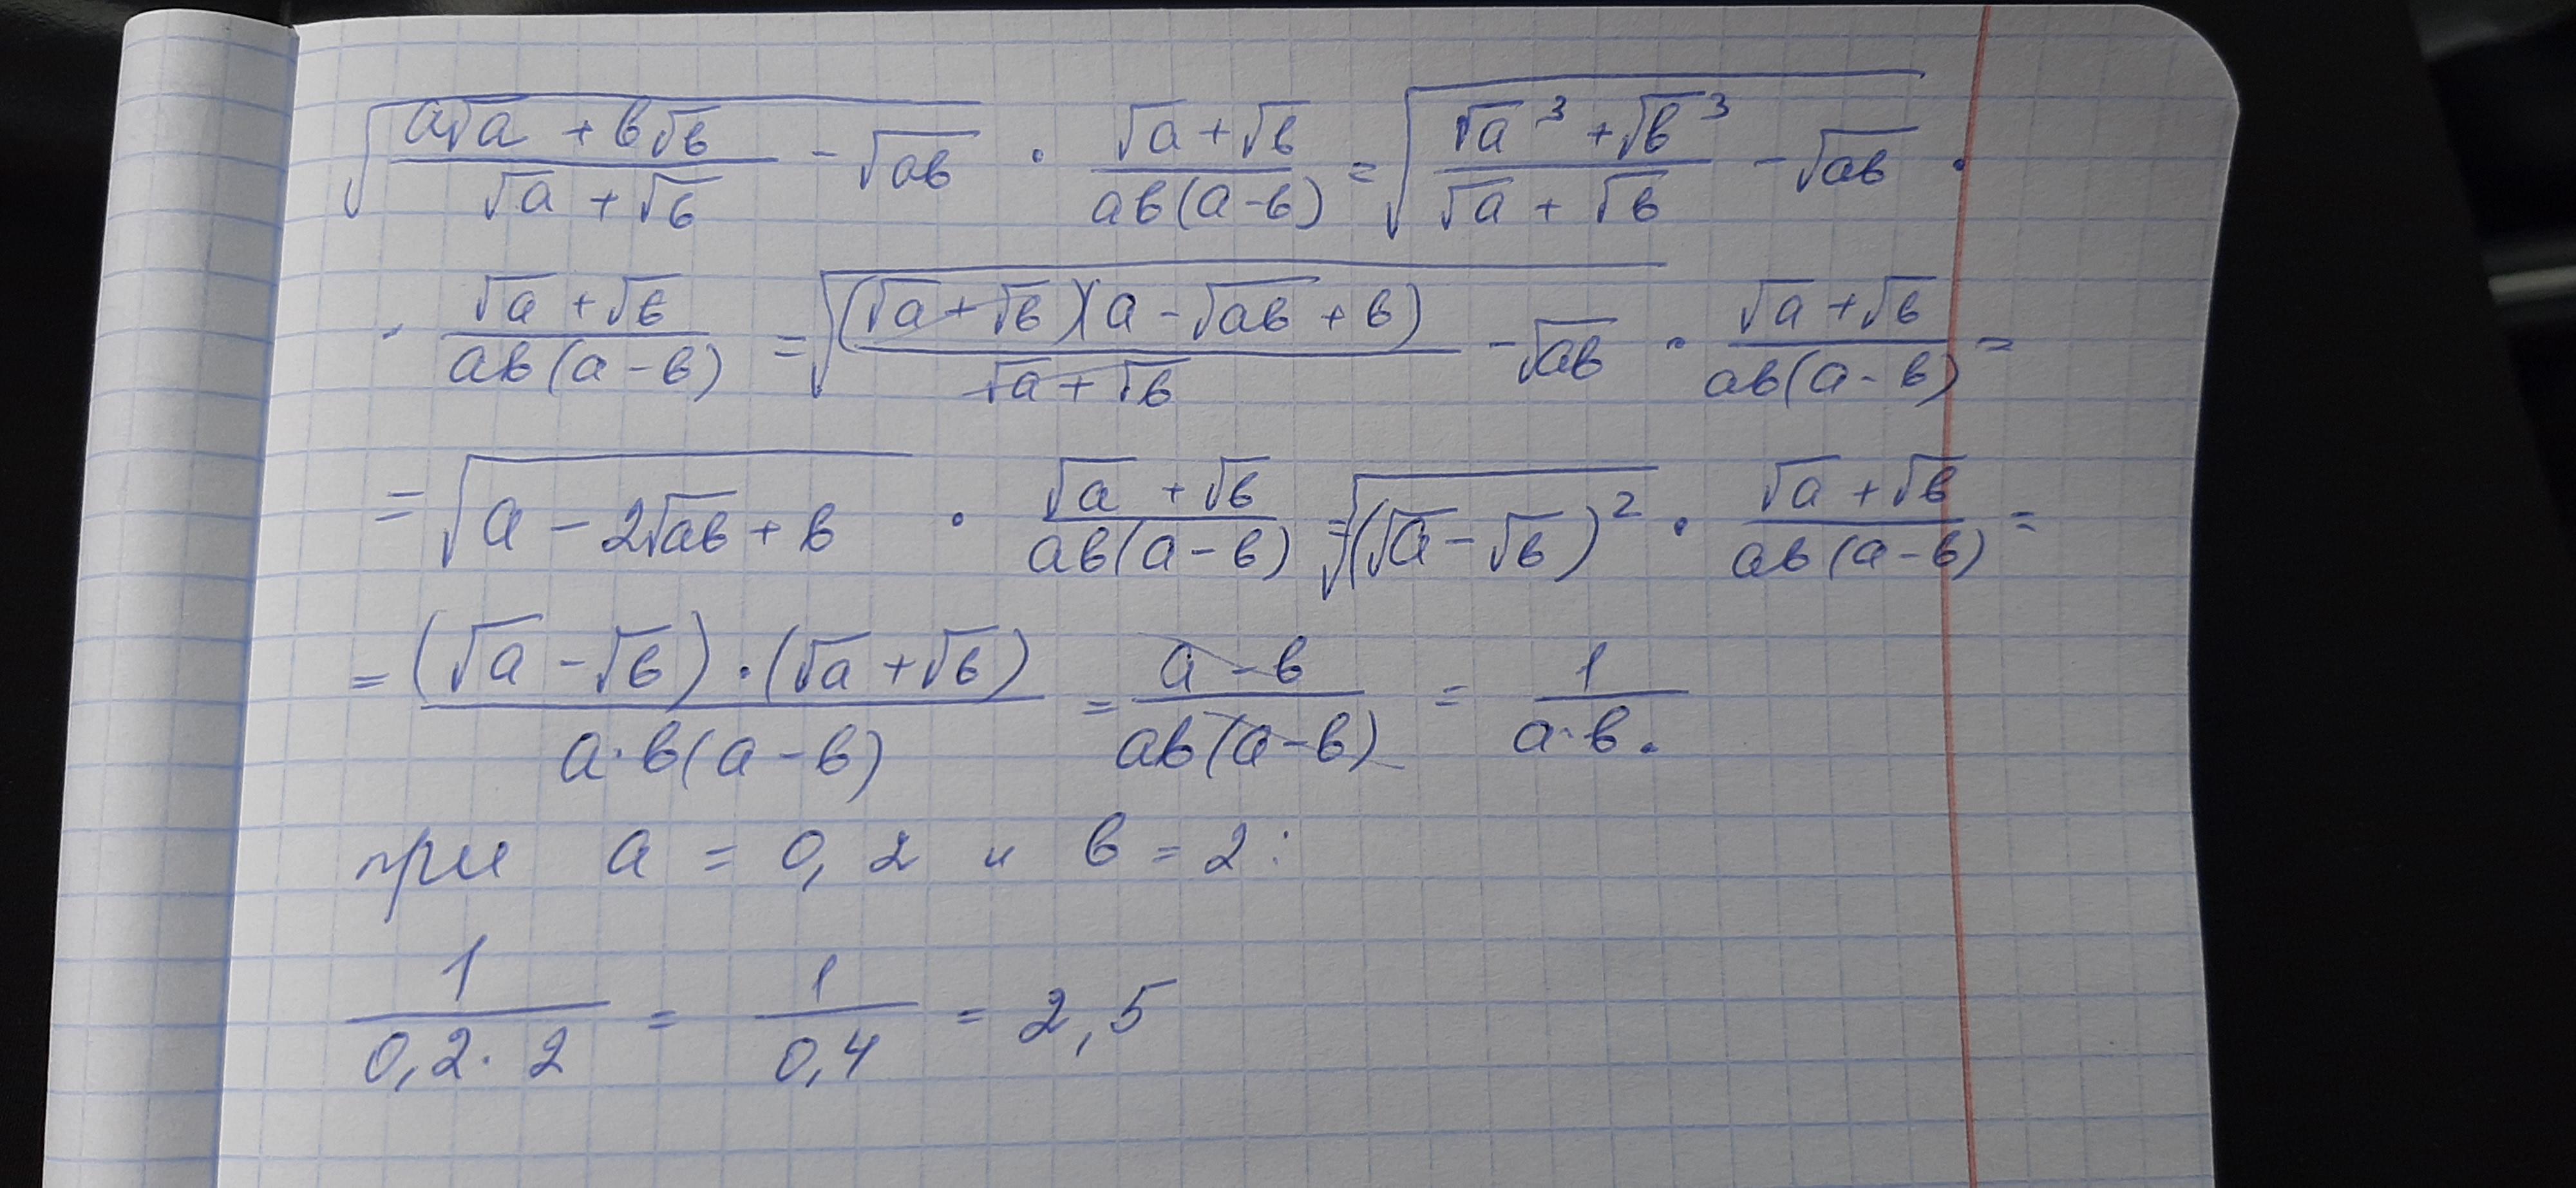 √((a√a + b√b)/(√a + √b) - √ab) · (√a + √b)/(ab(a-b)) = √((√a³ + √b³)/(√a + √b) - √ab) ·
· (√a + √b)/(ab(a-b)) = √((√a + √b)(a - √ab + b)/(√a + √b) - √ab) · (√a + √b)/(ab(a-b)) =
= √(a - 2√ab + b) · (√a + √b)/(ab(a-b)) = √((√a - √b)²) · (√a + √b)/(ab(a-b)) =
= ((√a - √b) · (√a + √b))/(a·b(a-b)) = (a-b)/(ab(a-b)) = 1/(a·b).
при a = 0,2 и b = 2:
1/(0,2·2) = 1/0,4 = 2,5